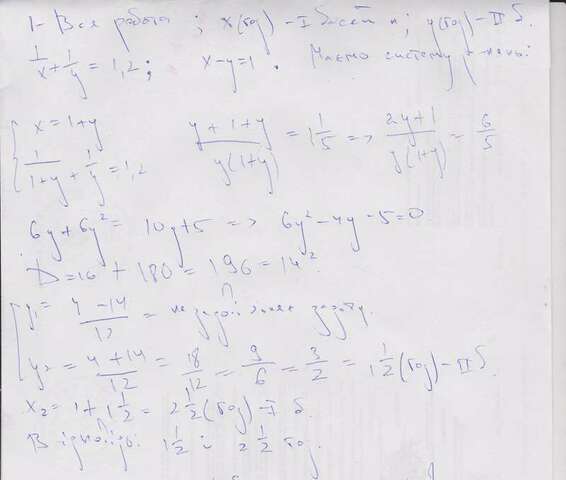 1 - Вся робота ; x (год) - I басейн ; y (год) - II б.
1/x + 1/y = 1,2 ; x - y = 1 . Маємо систему р-нень:
{ x = 1 + y
1/(1+y) + 1/y = 1,2
(y + 1 + y)/(y(1+y)) = 1 1/5 => (2y + 1)/(y(1+y)) = 6/5
6y + 6y² = 10y + 5 => 6y² - 4y - 5 = 0
D = 16 + 180 = 196 = 14².
y₁ = (4 - 14)/12 = не задовольняє задачу.
y₂ = (4 + 14)/12 = 18/12 = 9/6 = 3/2 = 1 1/2 (год) - II б.
x₂ = 1 + 1 1/2 = 2 1/2 (год) - I б.
Відповідь: 1 1/2 і 2 1/2 год.